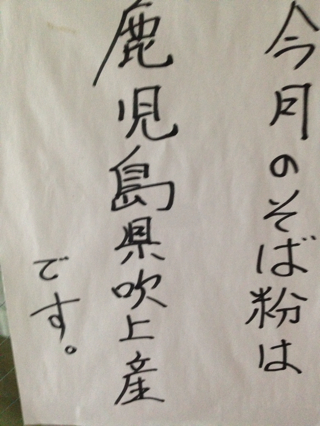 今月のそば粉は
鹿児島県吹上産
です。